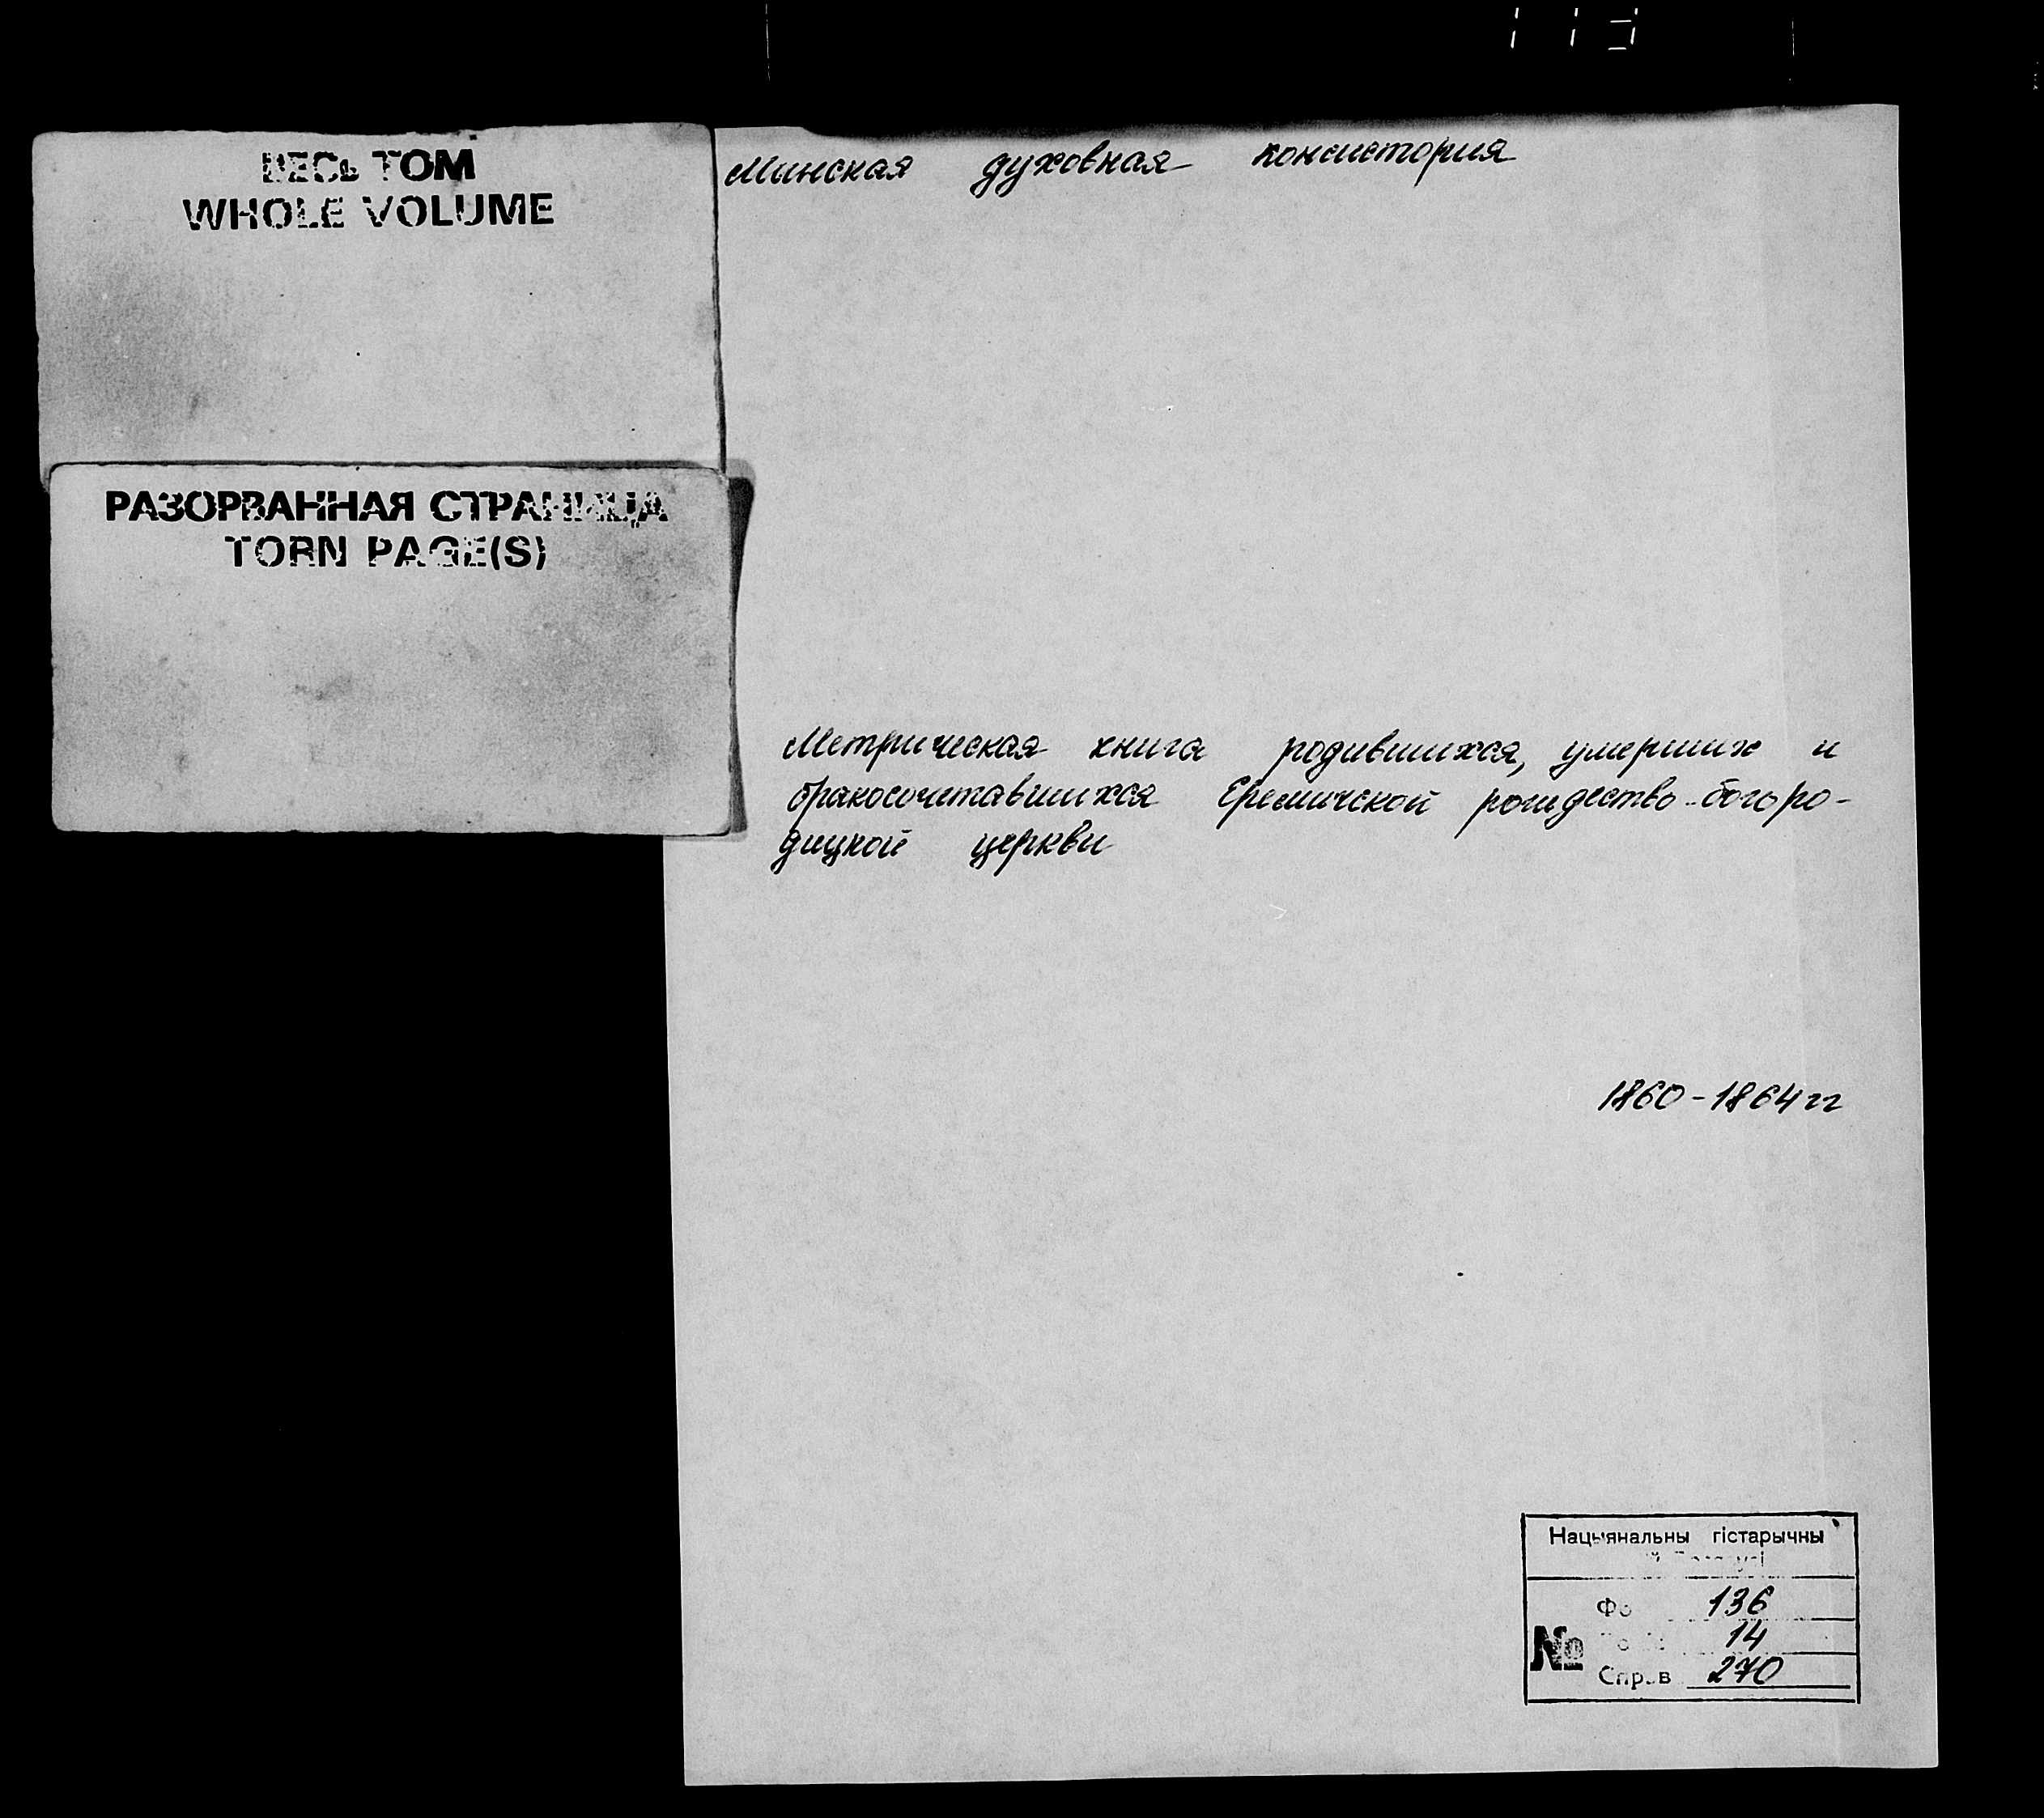 ВЕСЬ ТОМ
WHOLE VOLUME
РАЗОРВАННАЯ СТРАНИЦА
TORN PAGE(S)
Минская духовная консистория
Метрическая книга родившихся, умерших и
бракосочетавшихся Еремичской рождество-богоро-
дицкой церкви
1860-1864 гг
Нацыянальны гістарычны
136
№ 14
270